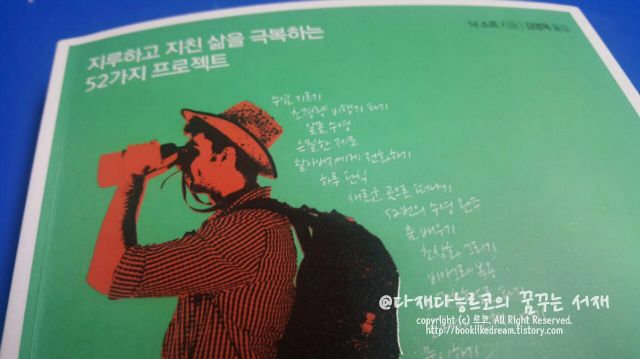 지루하고 지친 삶을 극복하는
52가지 프로젝트
닉 소프 지음 | 김영옥 옮김
수염 기르기
초경량 비행기 타기
알몸 수영
은밀한 제모
할아버지에게 전화하기
하루 단식
새로운 곳으로 떠나기
52번의 수영 완주
춤 배우기
초상화 그리기
비아그라 복용
@다재다능르코의 꿈꾸는 서재
copyright (c) 르코. All Right Reserved.
http://booklikedream.tistory.com